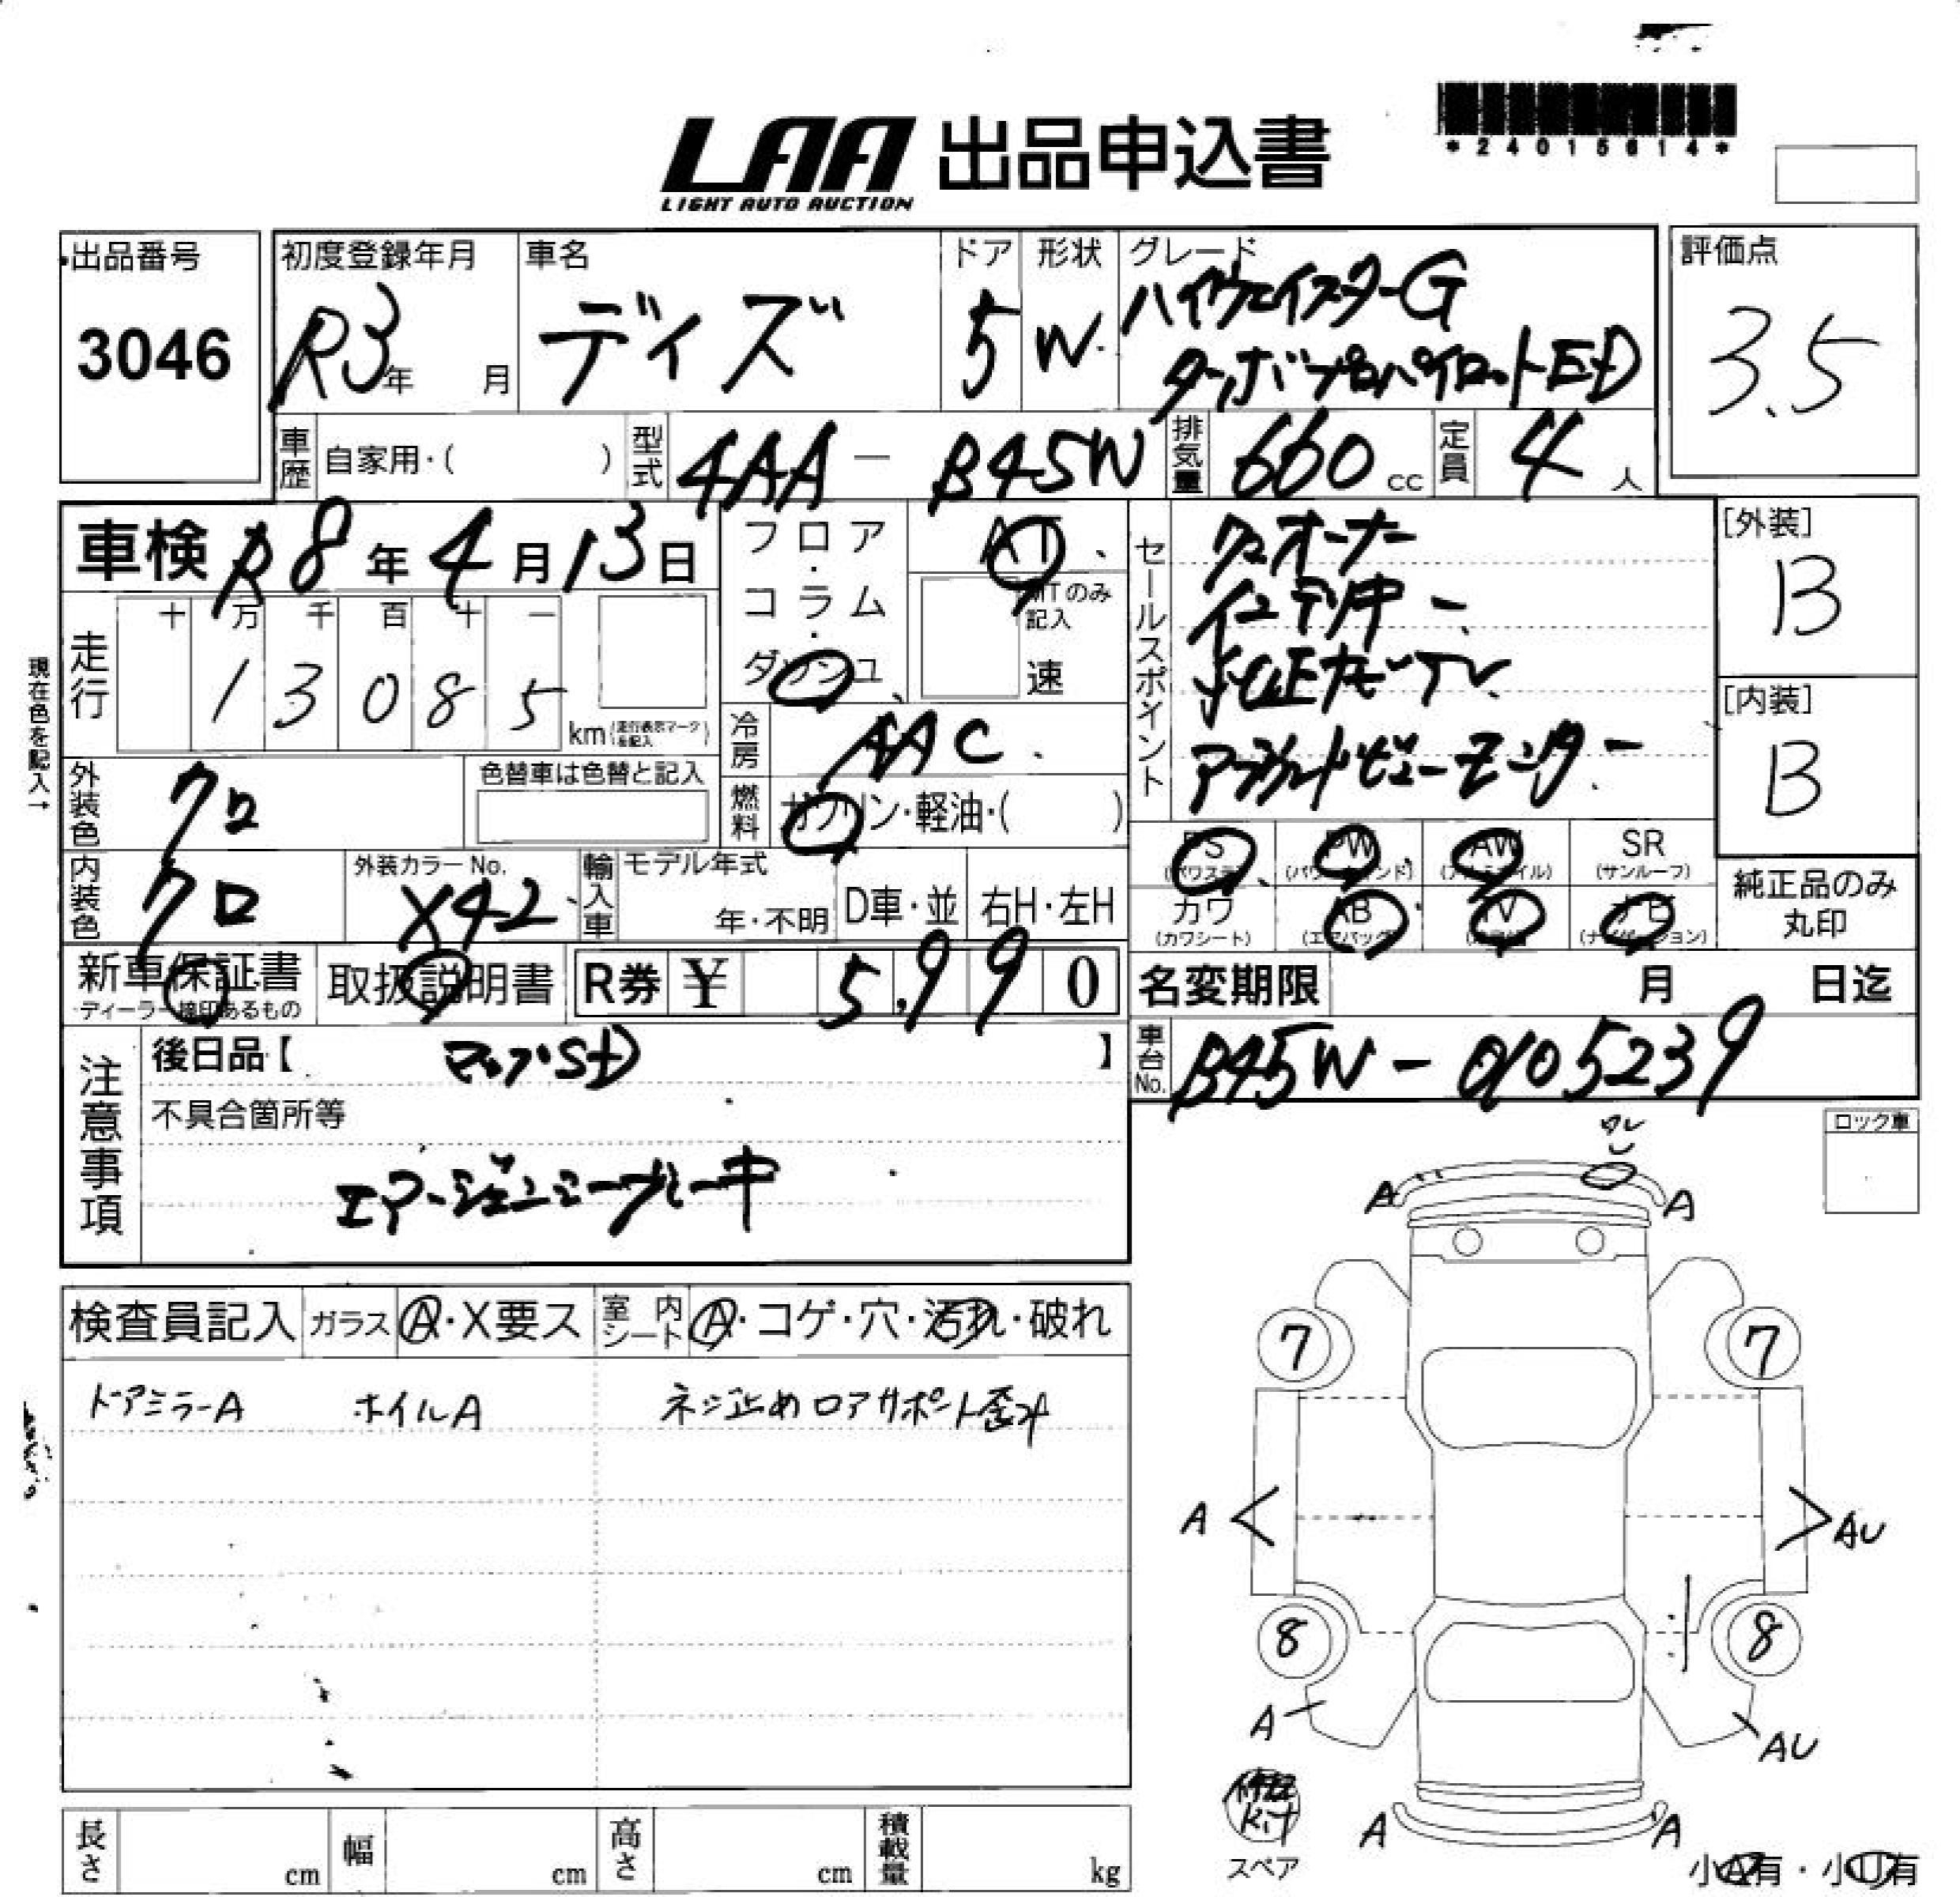 *24015614*
LAA 出品申込書
LIGHT AUTO AUCTION
出品番号
3046
初度登録年月
R3年 月
車名
デイズ
ドア
5
形状
W
グレード
ハイウェイスターG
ターボプロパイロットED
評価点
3.5
車歴 自家用・( )
型式 4AA - B45W
排気量 660 cc
定員 4 人
車検 R8年4月13日
フロア・コラム・ダッシュ
AT
MTのみ記入
速
セールスポイント
ワンオーナー
インテリキー
純正ナビTV
アラウンドビューモニター
[外装]
B
[内装]
B
現在色を記入→
走行
十 万 千 百 十 一
1 3 0 8 5
km (走行表示マークを記入)
冷房 AAC
外装色 クロ
色替車は色替と記入
燃料 ガソリン・軽油・( )
内装色 クロ
外装カラーNo.
X42
輸入車
モデル年式
年・不明
D車・並
右H・左H
PS
(パワステ)
PW
(パワーウィンド)
AW
(アルミホイル)
SR
(サンルーフ)
カワ
(カワシート)
AB
(エアバッグ)
TV
ナビ
(ナビゲーション)
純正品のみ
丸印
新車保証書
ディーラー捺印あるもの
取扱説明書
R券 ¥ 5,990
名変期限 月 日迄
車台No. B45W-0105239
注意事項
後日品【 マップSD 】
不具合箇所等
エマージェンシーブレーキ
ロック車
ワレ
A A
検査員記入
ガラス A・X要ス
室内シート A・コゲ・穴・汚れ・破れ
ドアミラーA ホイルA ネジ止め ロアサポート歪み
7 7
A AU
8 8
A AU
修理
Kit
スペア
A A
小A有・小U有
長さ cm
幅 cm
高さ cm
積載量 kg